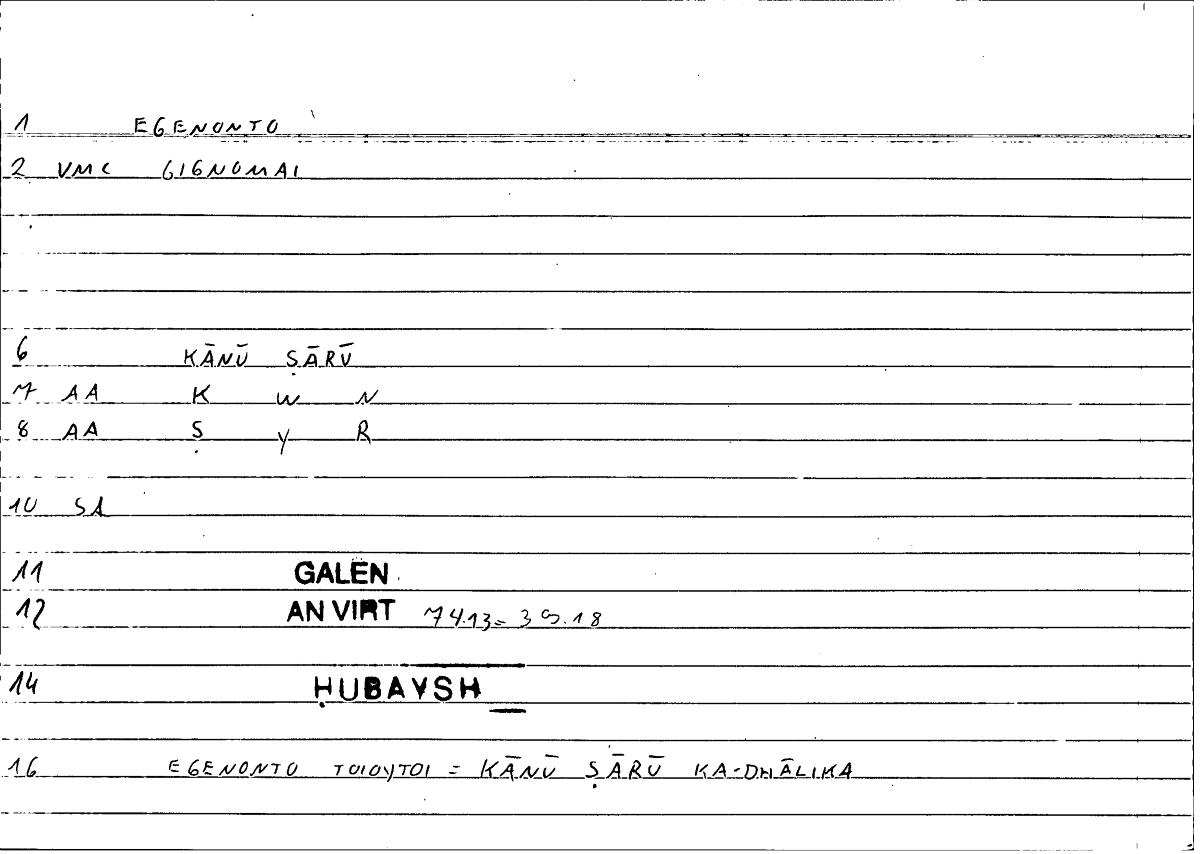 1 EGENONTO
2 VMC GIGNOMAI
6 KĀNŪ ṢĀRŪ
7 AA K W N
8 AA Ṣ Y R
10 SA
11 GALEN
12 AN VIRT 74.13= 39.18
14 ḤUBAYSH
16 EGENONTO TOIOYTOI = KĀNŪ ṢĀRŪ KA-DHĀLIKA